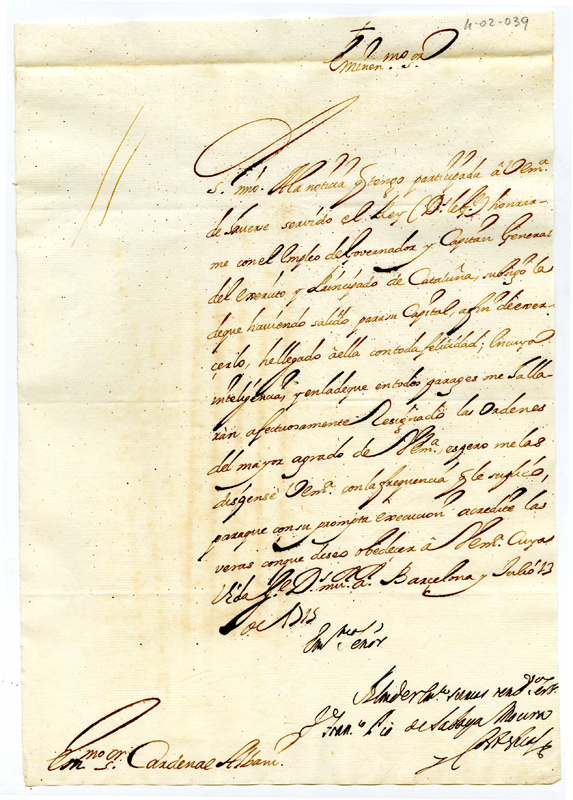 4-02-039
+
Eminen.mo S.or
S.r mio. A la noticia q tengo participada à Vem.a
de haverse servido el Rey (Ds. le g.e) honrar-
me con el Empleo de Governador y Capitan General
del Exercito y Principado de Cataluña, subsigo la
de que haviendo salido para su Capital, a fin de exer-
cerlo, he llegado à ella con toda felicidad; En cuya
inteligencia, y en la de que en todos parages me halla-
ràn afectuosamente Resignado las Ordenes
del mayor agrado de Vem.a, espero me las
dispense Vem.a con la frequencia q le suplicò,
para que con su prompta execucion acredite las
veras con que deseo obedecer à Vem.a Cuya
Vida G.e Ds. m.s a.s Barcelona y Julio 13
de 1715
Em.mo Señor
Fran.co Pio de Saboya Moura
Em.mo S.or Cardenal Albani.